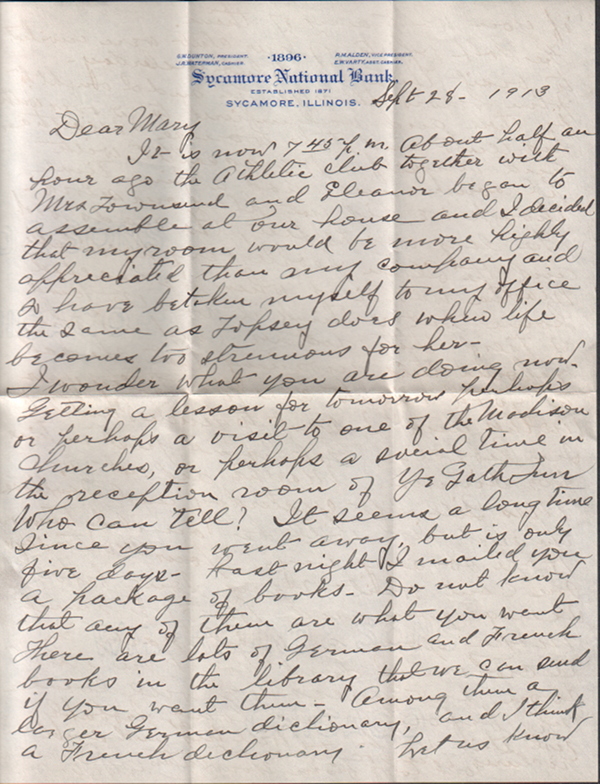 G.W. DUNTON, PRESIDENT. ·1896· P.M. ALDEN, VICE PRESIDENT.
J.R. WATERMAN, CASHIER. E.W. VARTY, ASST. CASHIER.
Sycamore National Bank.
ESTABLISHED 1871
SYCAMORE, ILLINOIS.
Sept 28 - 1913
Dear Mary
It is now 7 45 p.m. About half an
hour ago the Athletic club together with
Mrs Townsend and Eleanor began to
assemble at our house and I decided
that my room would be more highly
appreciated than my company and
so have betaken myself to my office
the same as Topsey does when life
becomes too strenuous for her-
I wonder what you are doing now.
Getting a lesson for tomorrow perhaps
or perhaps a visit to one of the Madison
Churches, or perhaps a social time in
the reception room of Ye Gath Inn
Who can tell? It seems a long time
since you went away, but is only
five days- Last night I mailed you
a package of books- Do not know
that any of them are what you want
There are lots of German and French
books in the library that we can send
if you want them- Among them a
larger German dictionary, and I think
a French dictionary. Let us know